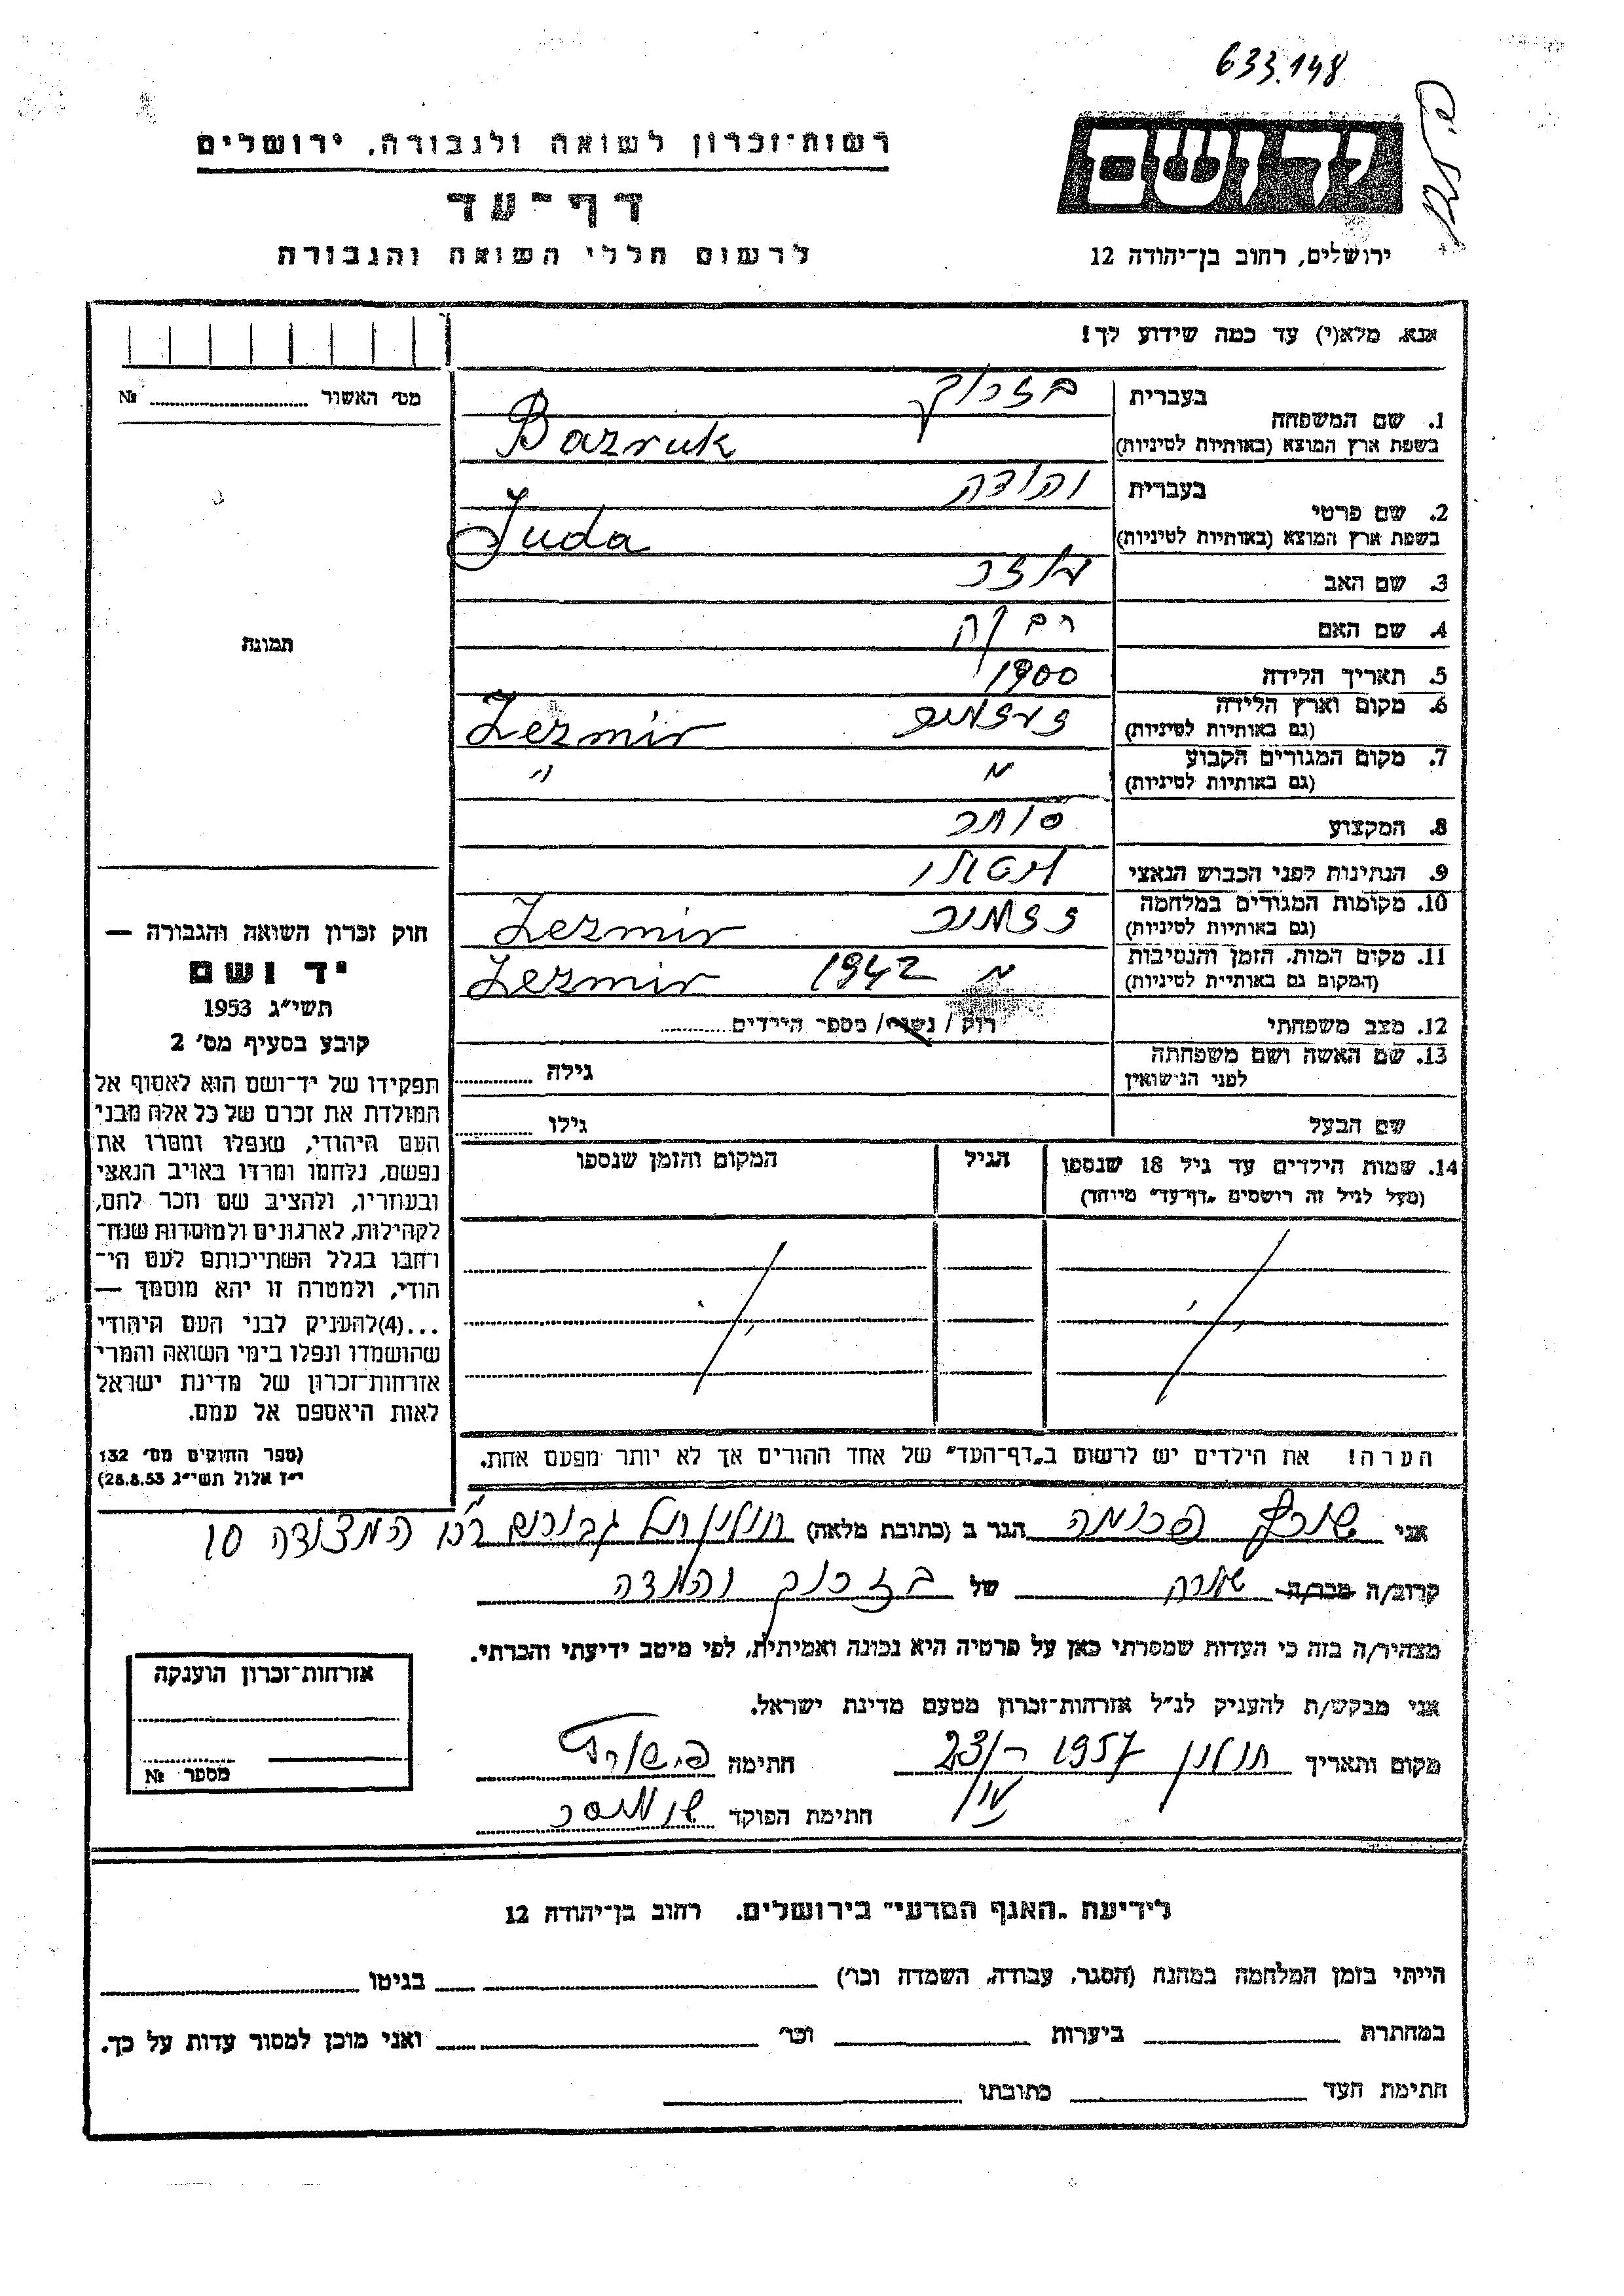 633.148
רשות־זכרון לשואה ולגבורה, ירושלים
יד ושם
דף־עד
לרשום חללי השואה והגבורה
ירושלים, רחוב בן־יהודה 12
אנא, מלא(י) עד כמה שידוע לך!
מס׳ האשור ........ №
1. שם המשפחה
בעברית בזרוק
בשפת ארץ המוצא (באותיות לטיניות) Bazruk
2. שם פרטי
בעברית יהודה
בשפת ארץ המוצא (באותיות לטיניות) Juda
3. שם האב
4. שם האם רבקה
5. תאריך הלידה 1900
6. מקום וארץ הלידה
(גם באותיות לטיניות) Zezmir
7. מקום המגורים הקבוע
(גם באותיות לטיניות) " "
8. המקצוע סוחר
9. הנתינות לפני הכבוש הנאצי
10. מקומות המגורים במלחמה
(גם באותיות לטיניות) Zezmir
11. מקום המות, הזמן והנסיבות
(המקום גם באותיות לטיניות) " 1942 Zezmir
12. מצב משפחתי רוק / נשוי / מספר הילדים
13. שם האשה ושם משפחתה
לפני הנישואין גילה
שם הבעל גילו
14. שמות הילדים עד גיל 18 שנספו
(מעל לגיל זה רושמים „דף־עד” מיוחד)
הגיל
המקום והזמן שנספו
הערה! את הילדים יש לרשום ב„דף־העד” של אחד ההורים אך לא יותר מפעם אחת.
תמונה
חוק זכרון השואה והגבורה —
יד ושם
תשי״ג 1953
קובע בסעיף מס׳ 2
תפקידו של יד־ושם הוא לאסוף אל
המולדת את זכרם של כל אלה מבני
העם היהודי, שנפלו ומסרו את
נפשם, נלחמו ומרדו באויב הנאצי
ובעוזריו, ולהציב שם וזכר להם,
לקהילות, לארגונים ולמוסדות שנח־
רבו בגלל השתייכותם לעם הי־
הודי, ולמטרה זו יהא מוסמך —
...(4)להעניק לבני העם היהודי
שהושמדו ונפלו בימי השואה והמרי
אזרחות־זכרון של מדינת ישראל
לאות היאספם אל עמם.
(ספר החוקים מס׳ 132
י״ז אלול תשי״ג 28.8.53)
אני פרומה הגר ב (כתובת מלאה) חולון תל גבורים רח׳ המצודה 10
קרוב/ה מכר/ה של בזרוק יהודה
מצהיר/ה בזה כי העדות שמסרתי כאן על פרטיה היא נכונה ואמיתית, לפי מיטב ידיעתי והכרתי.
אני מבקש/ת להעניק לנ״ל אזרחות־זכרון מטעם מדינת ישראל.
מקום ותאריך חולון 1957 חתימה
חתימת הפוקד
אזרחות־זכרון הוענקה
מספר №
לידיעת „האגף המדעי” בירושלים. רחוב בן־יהודה 12
הייתי בזמן המלחמה במחנה (הסגר, עבודה, השמדה וכו׳) בגיטו
במחתרת ביערות וכו׳ ואני מוכן למסור עדות על כך.
חתימת העד כתובתו